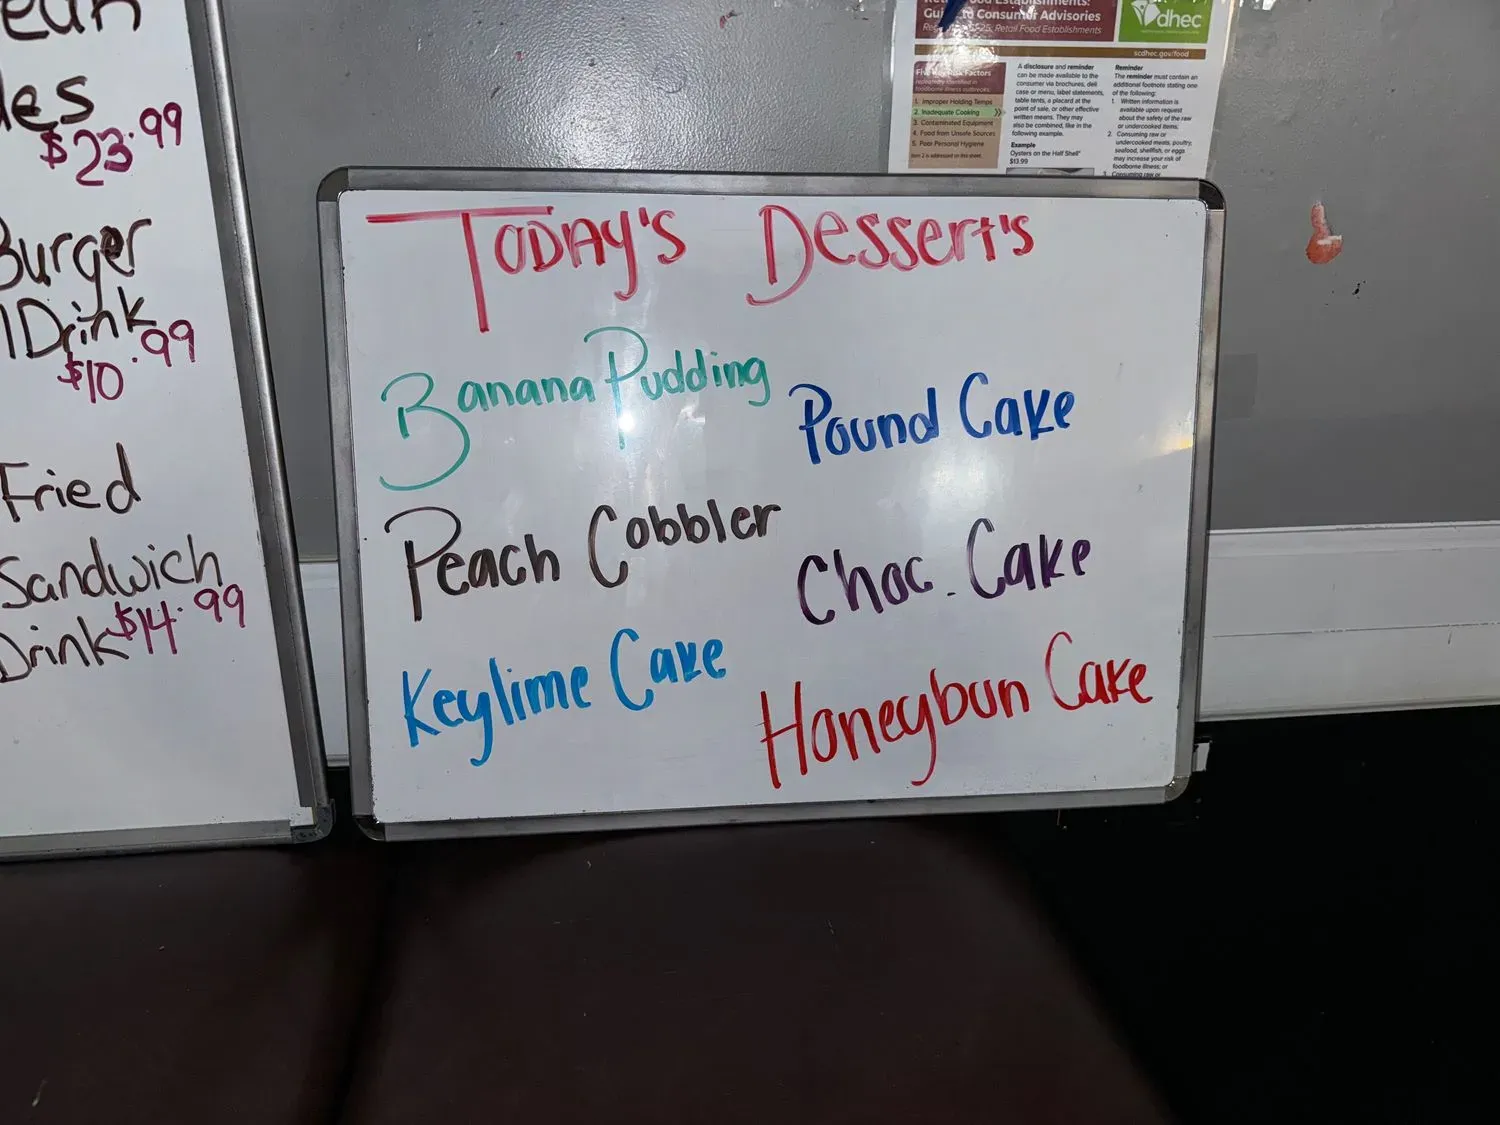 des
$23.99
Burger
Drink
$10.99
Fried
Sandwich
Drink $14.99
Today's Dessert's
Banana Pudding
Pound Cake
Peach Cobbler
Choc. Cake
Keylime Cake
Honeybun Cake
Guide to Consumer Advisories
Retail Food Establishments
dhec
scdhec.gov/food
Five Key Risk Factors
repeatedly identified in
foodborne illness outbreaks:
1. Improper Holding Temps
2. Inadequate Cooking
3. Contaminated Equipment
4. Food from Unsafe Sources
5. Poor Personal Hygiene
Item 2 is addressed on this sheet.
A disclosure and reminder
can be made available to the
consumer via brochures, deli
case or menu, label statements,
table tents, a placard at the
point of sale, or other effective
written means. They may
also be combined, like in the
following example.
Example
Oysters on the Half Shell*
$13.99
Reminder
The reminder must contain an
additional footnote stating one
of the following:
1. Written information is
available upon request
about the safety of the raw
or undercooked items;
2. Consuming raw or
undercooked meats, poultry,
seafood, shellfish, or eggs
may increase your risk of
foodborne illness; or
3. Consuming raw or